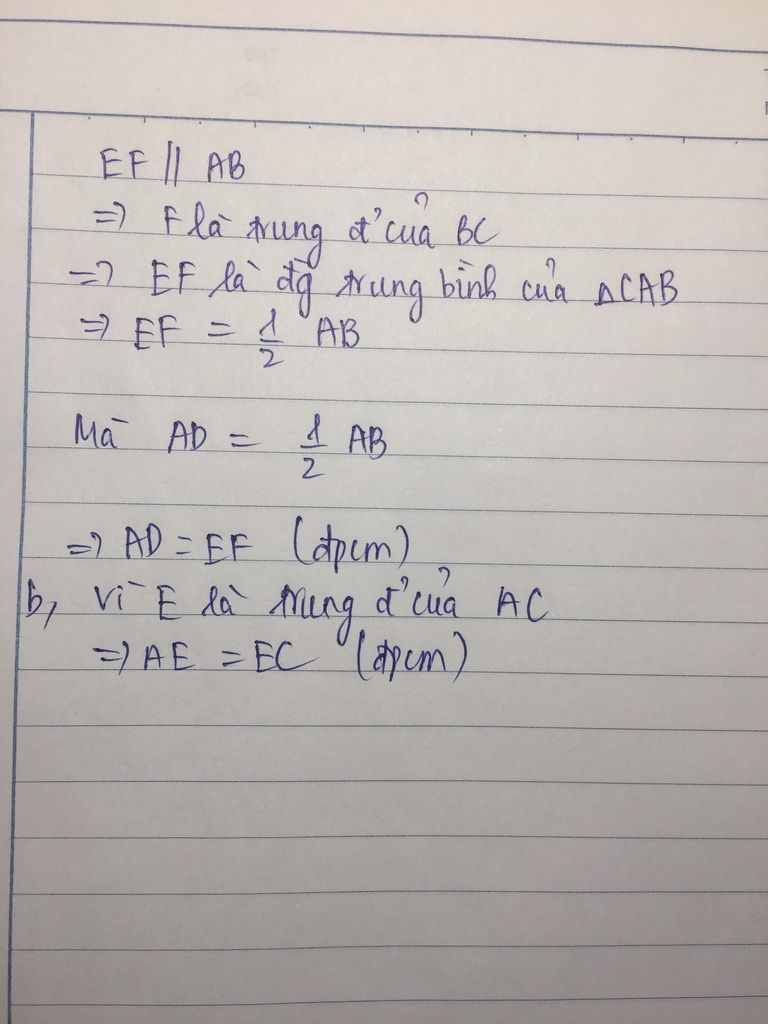 EF // AB
=> F là trung đ' của BC
=> EF là đg trung bình của ΔCAB
=> EF = 1/2 AB
Mà AD = 1/2 AB
=> AD = EF (đpcm)
b, Vì E là trung đ' của AC
=> AE = EC (đpcm)